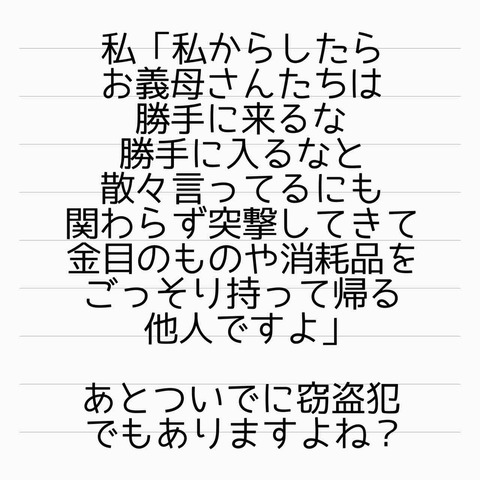 私「私からしたら
お義母さんたちは
勝手に来るな
勝手に入るなと
散々言ってるにも
関わらず突撃してきて
金目のものや消耗品を
ごっそり持って帰る
他人ですよ」
あとついでに窃盗犯
でもありますよね？